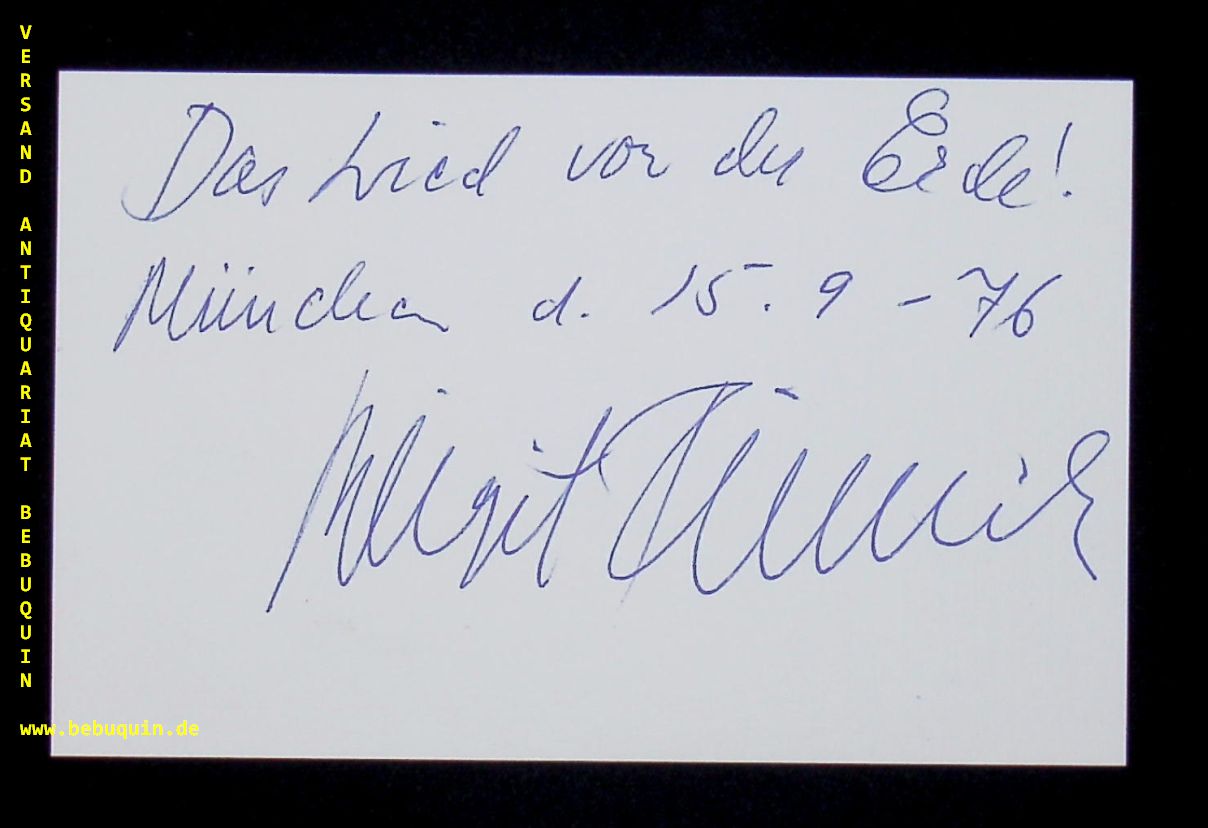 VERSAND ANTIQUARIAT BEBUQUIN
Das Lied von der Erde!
München d. 15. 9 - 76
Birgit Finnilä
www.bebuquin.de